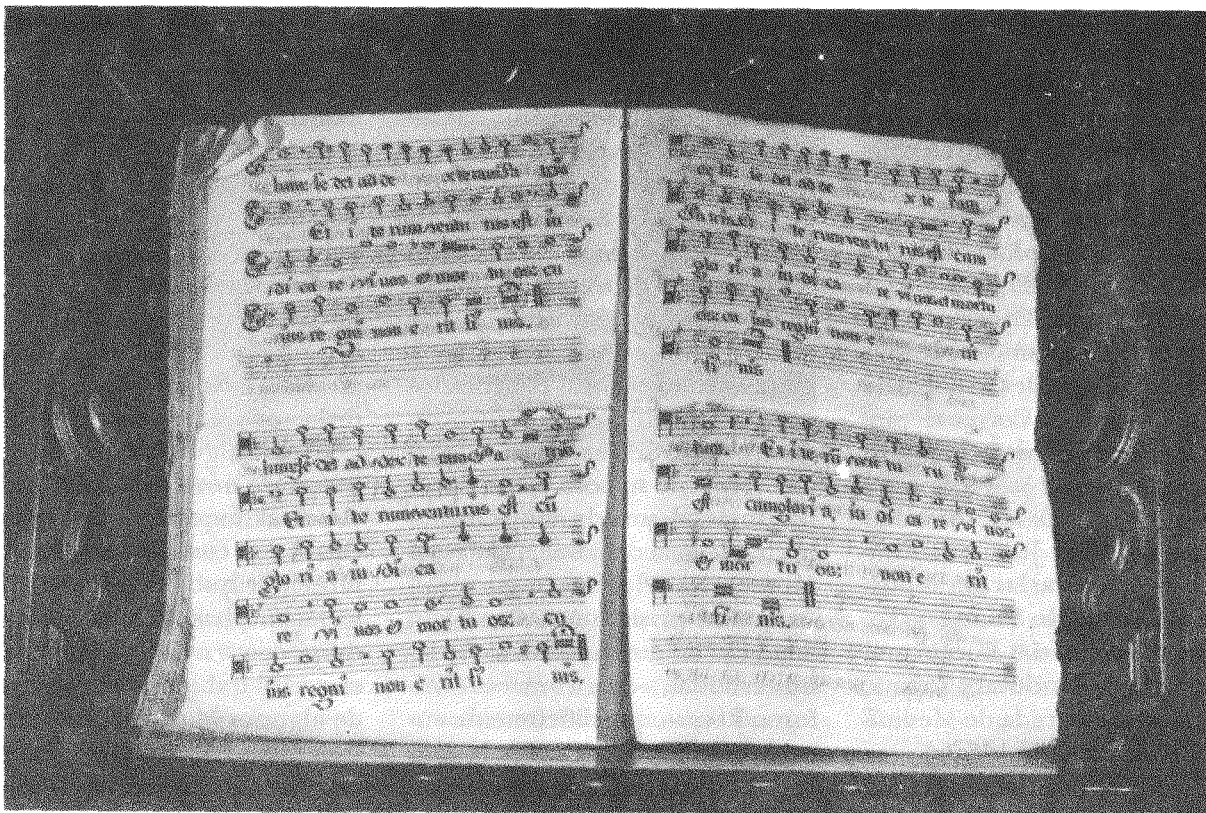 det ad de
Et i te rum ventu rus est iu
di ca re vi uos et mor tu os: cu
ius re gni non e rit fi nis.
det ad dex te ram
Et i te rum venturus est cū
glo ri a iu di ca
re vi uos et mor tu os: cu
ius regni non e rit fi nis.
det ad de x te ram
Et i te rum ven tu rus est cum
glo ri a iu di ca re vi uos et mortu
os: cu ius regni non e rit
fi nis
Et i te rū ven tu ru s
est cum glori a, iu di ca re vi uos
et mor tu os: non e rit
fi nis.